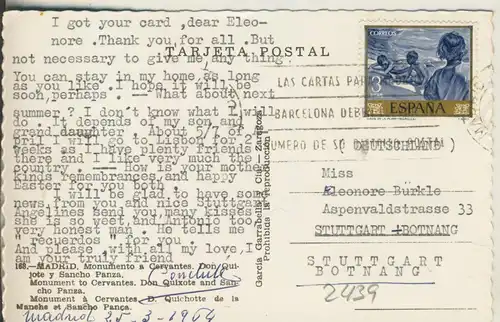 I got your card ,dear Eleo-
nore .Thank you for all .But
TARJETA POSTAL
not necessary to give me any thing
You can stay in my home as long
as you like .I hope it will be
soon perhaps . — what about next
summer ? I don't know what I will
do . It depends of my son and
grand daughter . About 5/7 of
pril I will go to Lisbon for 2
weeks as I have plenty friends
there and I like very much the
country . — How is your mother
kinde remembrances and happy
Easter for you both .
I will be glad to have some
news from you and nice Stuttgart
Angelines send you many kisses
she is so sweet and Antonio too
very honest man . He tells me
recuerdos for you .
And please ,with all my love,I
am your truly friend
Conchita
168.-MADRID. Monumento a Cervantes. Don Qui-
jote y Sancho Panza.
Monument to Cervantes. Don Quixote and San-
cho Panza.
Monument à Cervantes. D. Quichotte de la
Manche et Sancho Pança.
Madrid 25-3-1964
García Garrabella y Cía. - Zaragoza
Prohibida la reproducción
CORREOS
3
ESPAÑA
LAS CARTAS PARA
BARCELONA DEBEN
NUMERO DE SU DISTRITO POSTAL
( DEUTSCHLAND)
Miss
Eleonore Bürkle
Aspenvaldstrasse 33
STUTTGART -BOTNANG
STUTTGART
BOTNANG
2439